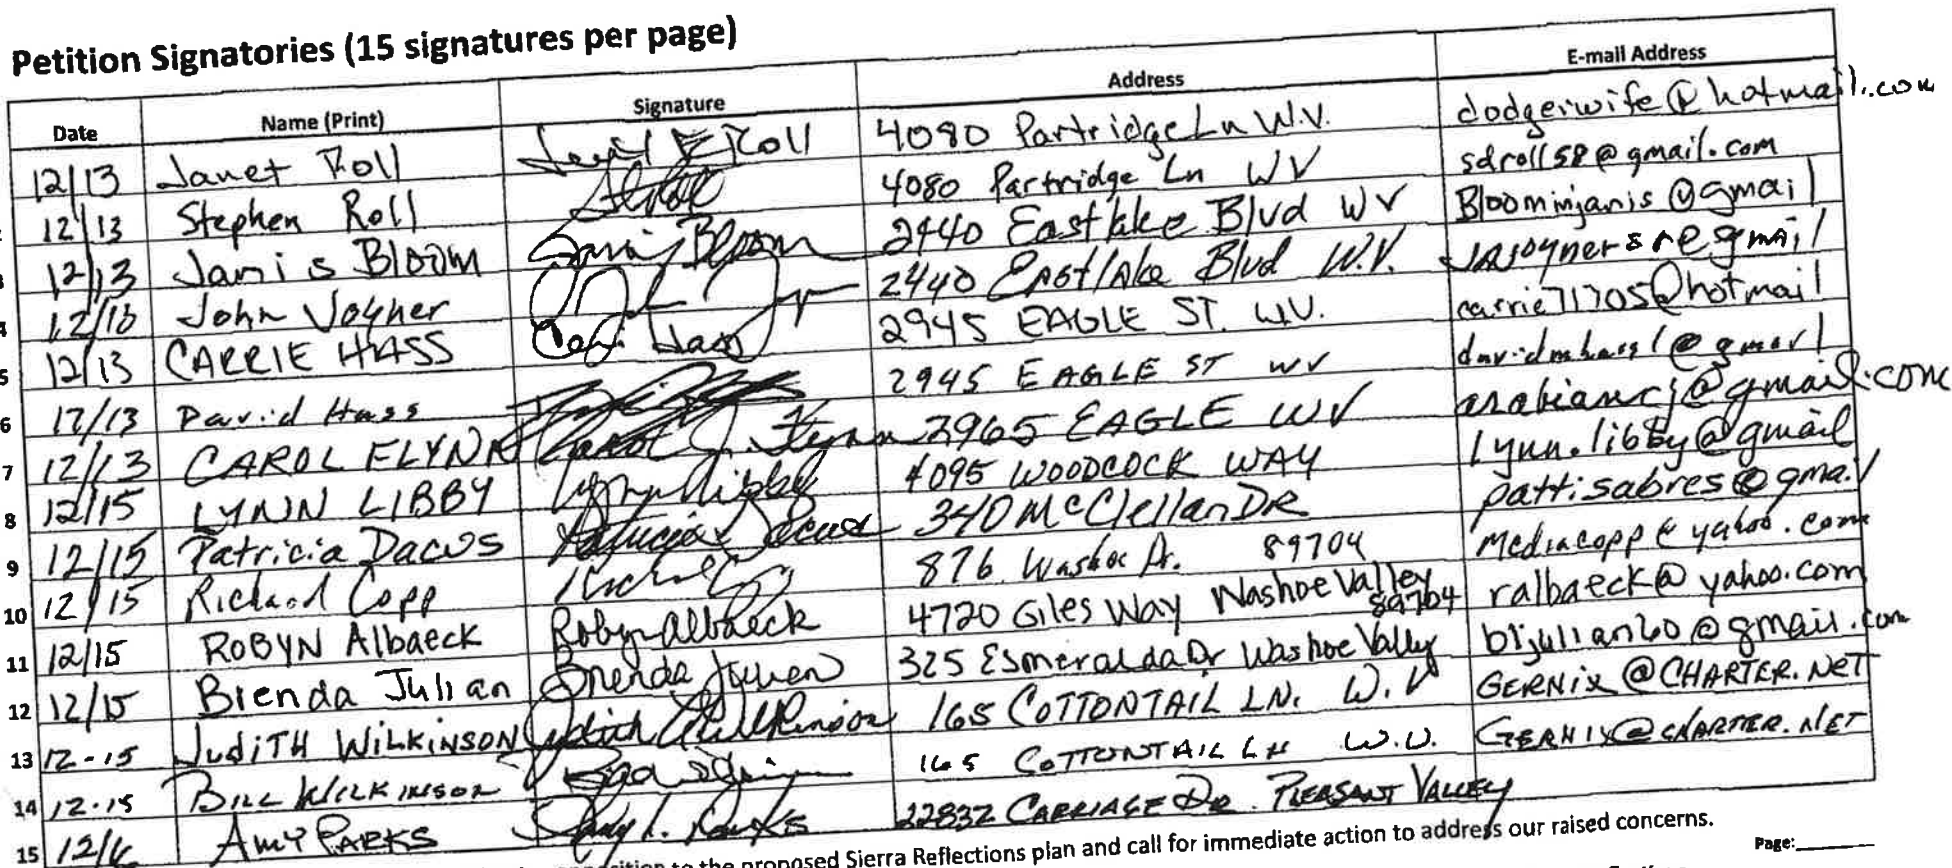 Petition Signatories (15 signatures per page)
Date Name (Print) Signature Address E-mail Address
12/13 Janet Roll Janet E Roll 4080 Partridge Ln W.V. dodgerwife@hotmail.com
12/13 Stephen Roll 4080 Partridge Ln WV sdroll58@gmail.com
3 12/13 Janis Bloom Janis Bloom 2440 Eastlake Blvd WV Bloominjanis@gmail
4 12/10 John Joyner 2440 Eastlake Blvd W.V. @gmail
5 12/13 CARRIE HASS Carrie Hass 2945 EAGLE ST. W.V. carrie71705@hotmail
6 12/13 David Hass 2945 EAGLE ST WV davidmhass1@gmail
7 12/13 CAROL FLYNN Carol J. Flynn 2965 EAGLE WV arabiancj@gmail.com
8 12/15 LYNN LIBBY Lynn Libby 4095 WOODCOCK WAY lynn.libby@gmail
9 12/15 Patricia Dacus Patricia Dacus 340 McClellan DR pattisabres@gmail
10 12/15 Richard Copp 876 Washoe Dr. 89704 mediacopp@yahoo.com
11 12/15 ROBYN Albaeck Robyn Albaeck 4720 Giles Way Washoe Valley 89704 ralbaeck@yahoo.com
12 12/15 Brenda Julian Brenda Julian 325 Esmeralda Dr Washoe Valley bjjulian60@gmail.com
13 12-15 JUDITH WILKINSON Judith Wilkinson 165 COTTONTAIL LN. W.V GERNIX@CHARTER.NET
14 12-15 BILL WILKINSON 165 COTTONTAIL LN W.V. GERNIX@CHARTER.NET
15 12/16 AMY PARKS Amy L. Parks 22832 CARRIAGE DR. PLEASANT VALLEY
to the proposed Sierra Reflections plan and call for immediate action to address our raised concerns.
Page: